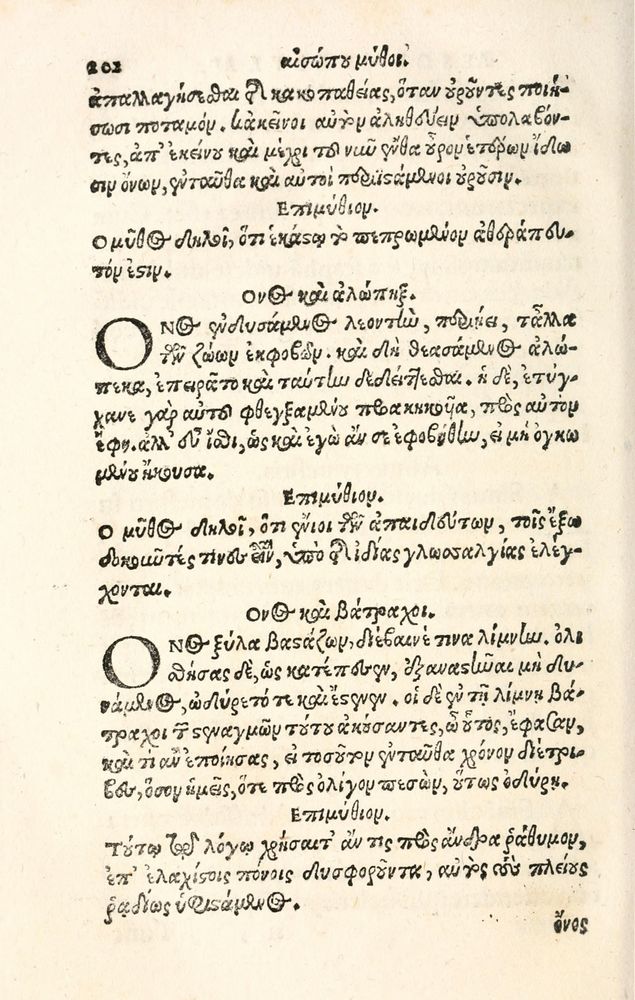 202 αἰσώπου μῦθοι.
ἀπαλλαγήσεσθαι τῆς κακοπαθείας, ὅταν οὐροῦντες ποιή-
σωσι ποταμόν. κἀκεῖνοι αὐτὸν ἀληθεύειν ὑπολαβόν-
τες, ἀπ' ἐκείνου καὶ μέχρι τοῦ νῦν ἔνθα οὖρον ἑτέρων ἴδω
σιν ὄνων, ἐνταῦθα καὶ αὐτοὶ περιϊστάμενοι οὐροῦσιν.
Επιμύθιον.
Ο μῦθος δηλοῖ, ὅτι ἑκάστῳ τὸ πεπρωμένον ἀθεράπευ-
τόν ἐστιν.
Ονος καὶ ἀλώπηξ.
ΟΝος ἐνδυσάμενος λεοντῆν, περιῄει, τἆλλα
τῶν ζώων ἐκφοβῶν. καὶ δὴ θεασάμενος ἀλώ-
πεκα, ἐπειρᾶτο καὶ ταύτην δεδίττεσθαι. ἡ δὲ, ἐτύγ-
χανε γὰρ αὐτοῦ φθεγξαμένου προακηκοῦα, πρὸς αὐτὸν
ἔφη. ἀλλ' εὖ ἴσθι, ὡς καὶ ἐγὼ ἄν σε ἐφοβήθην, εἰ μὴ ὀγκω
μένου ἤκουσα.
Επιμύθιον.
Ο μῦθος δηλοῖ, ὅτι ἔνιοι τῶν ἀπαιδεύτων, τοῖς ἔξω
δοκοῦντές τινες εἶναι, ὑπὸ τῆς ἰδίας γλωσσαλγίας ἐλέγ-
χονται.
Ονος καὶ Βάτραχοι.
ΟΝος ξύλα βαστάζων, διέβαινέ τινα λίμνην. ὀλι
σθήσας δὲ, ὡς κατέπεσεν, ἐξαναστῆναι μὴ δυ-
νάμενος, ὠδύρετό τε καὶ ἔστενεν. οἱ δὲ ἐν τῇ λίμνῃ βά-
τραχοι τῶν στεναγμῶν τούτου ἀκούσαντες, ὦ οὗτος, ἔφασαν,
καὶ τί ἂν ἐποίησας, εἰ τοσοῦτον ἐνταῦθα χρόνον διέτρι-
βες, ὅσον ἡμεῖς, ὅτε πρὸς ὀλίγον πεσὼν, οὕτως ὀδύρῃ.
Επιμύθιον.
Τούτῳ τῷ λόγῳ χρήσαιτ' ἄν τις πρὸς ἄνδρα ῥάθυμον,
ἐπ' ἐλαχίστοις πόνοις δυσφοροῦντα, αὐτὸς τοὺς πλείους
ῥᾳδίως ὑφιστάμενος.
ὄνος